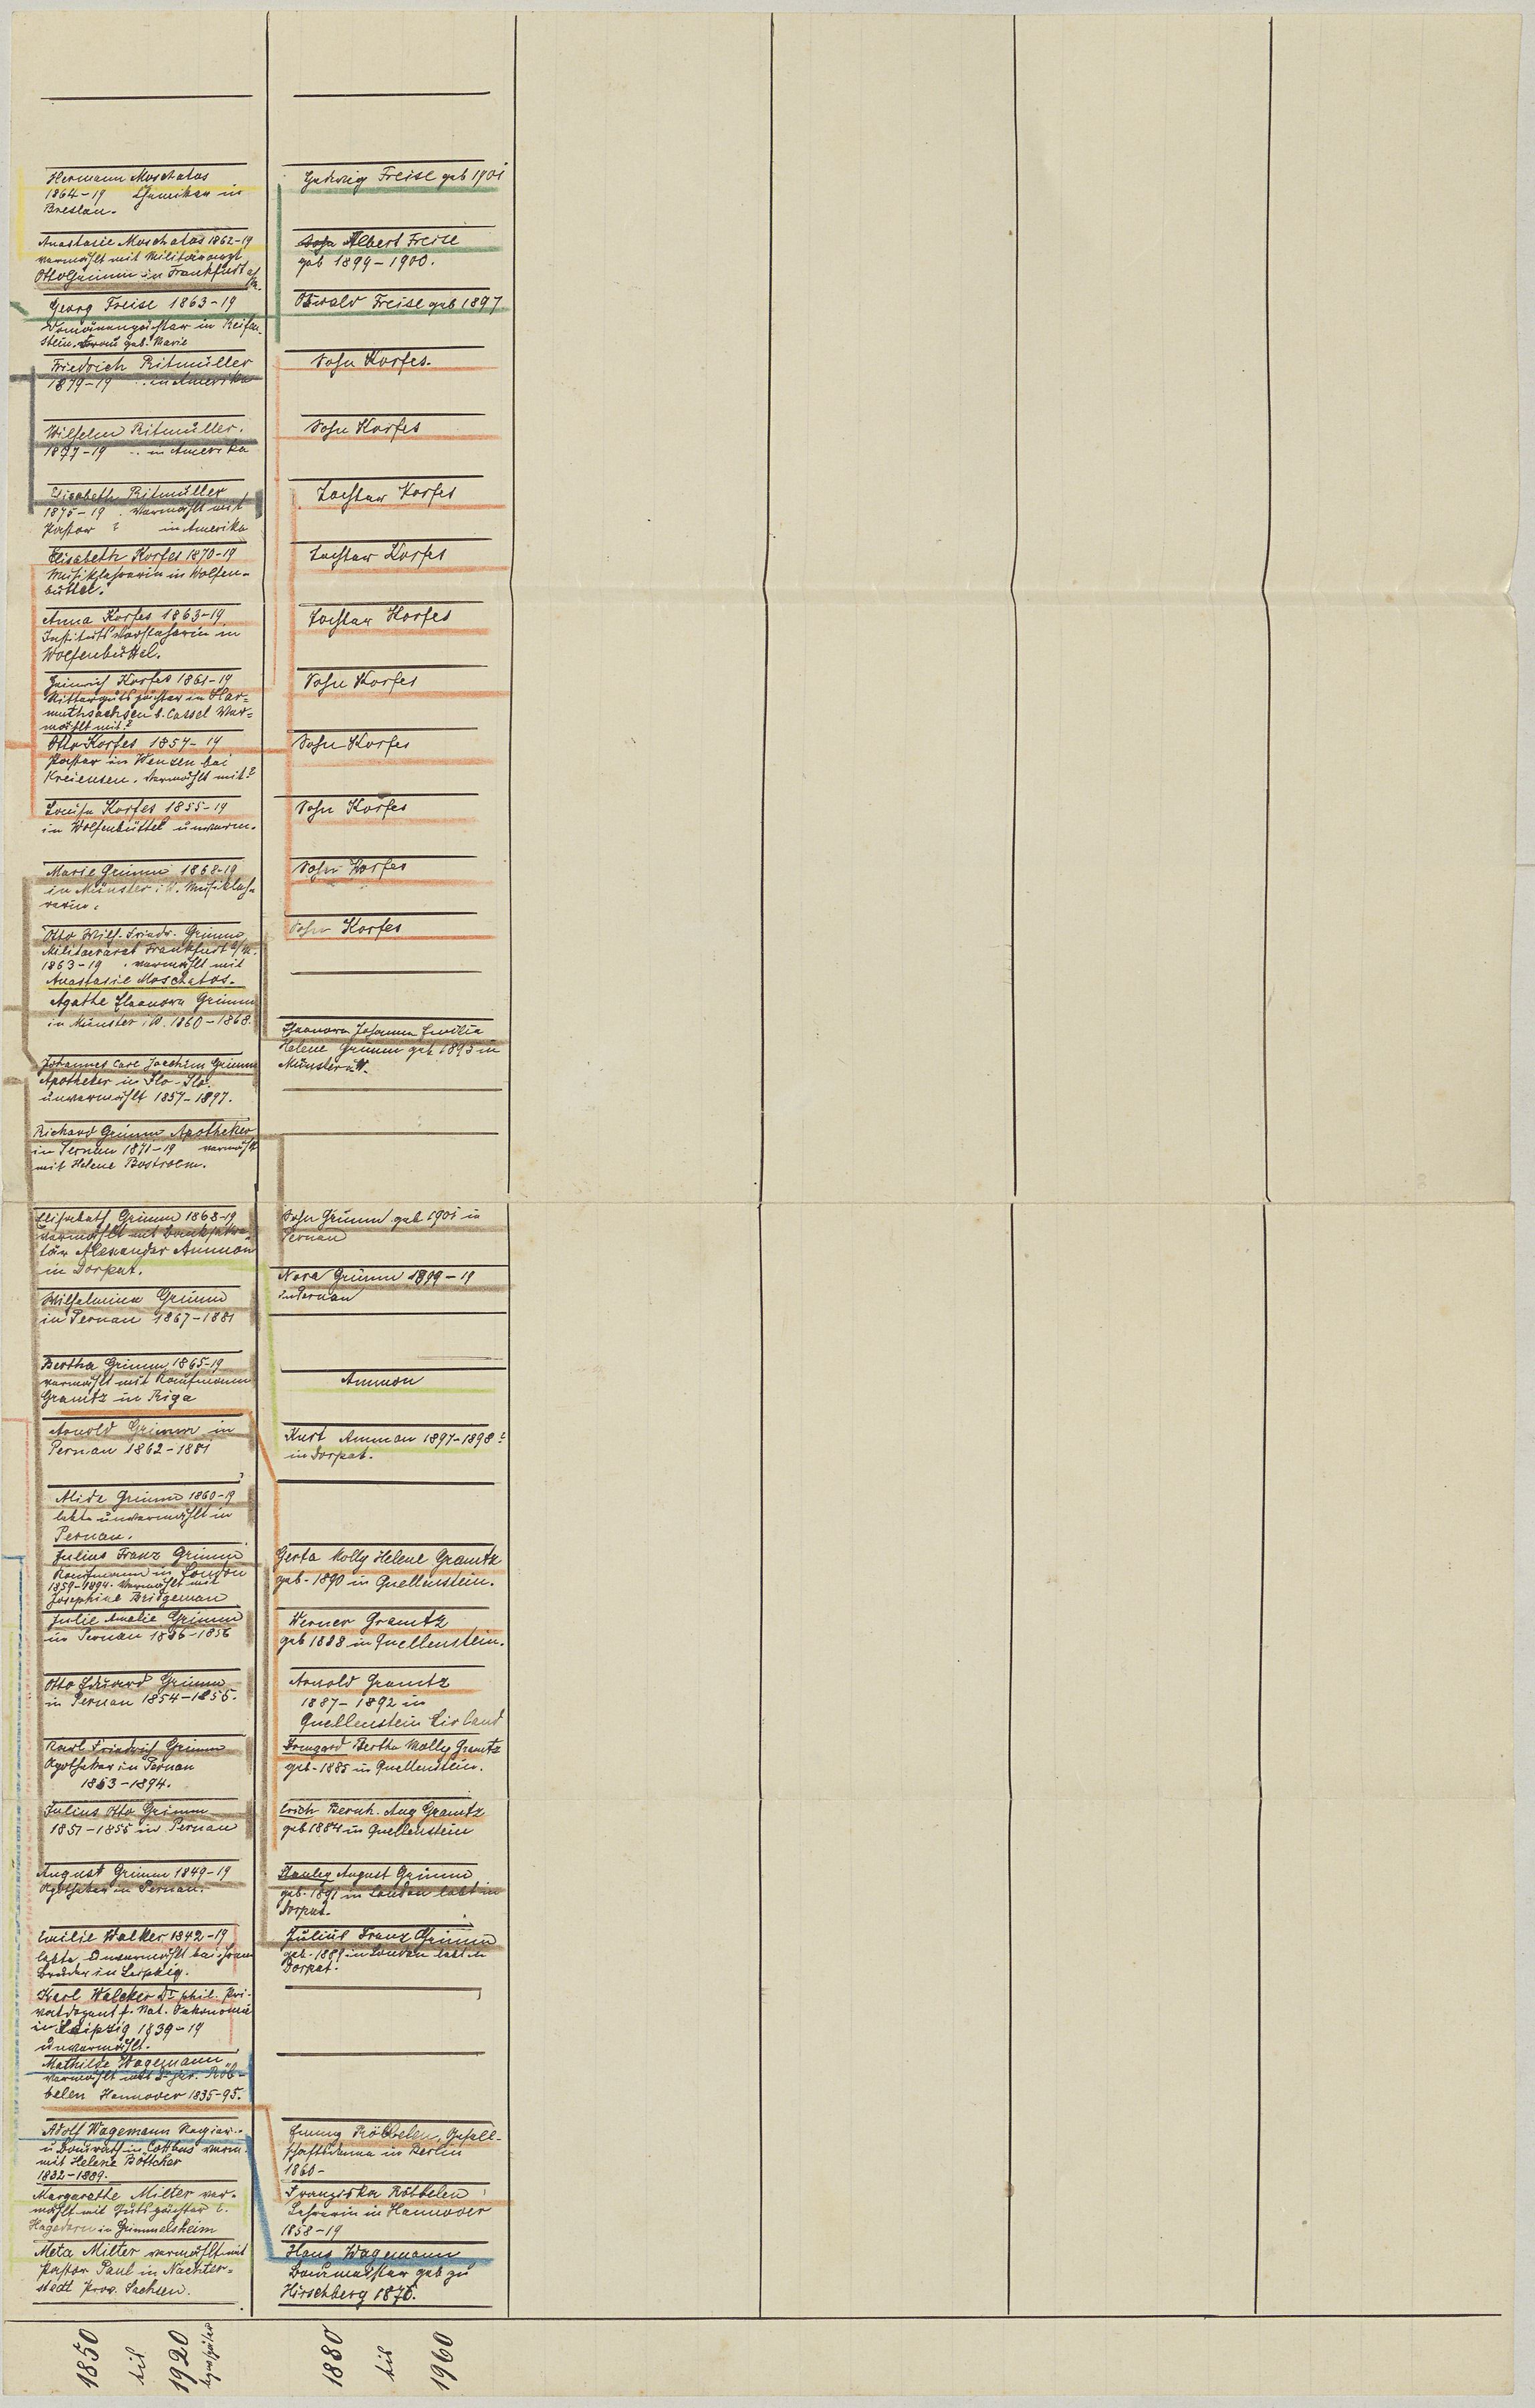 Hermann Moschatos
1864-19 Chemiker in
Breslau.
Anastasie Moschatos 1862-19
vermählt mit Militärarzt
Otto Grimm in Frankfurt a/M.
Georg Freise 1863-19
Domänenpächter in Reifen-
stein. Frau geb. Marie
Friedrich Ritmüller
1879-19 .. in Amerika
Wilhelm Ritmüller.
1877-19 .. in Amerika
Elisabeth Ritmüller
1875-19 . vermählt mit
Pastor ? in Amerika
Elisabeth Korfes 1870-19
Musiklehrerin in Wolfen-
büttel.
Anna Korfes 1863-19
Institutsvorsteherin in
Wolfenbüttel.
Heinrich Korfes 1861-19
Rittergutspächter in Har=
muthsachsen b. Cassel Ver=
mählt mit?
Otto Korfes 1857-19
Pastor in Wenzen bei
Kreiensen. Vermählt mit?
Louise Korfes 1855-19
in Wolfenbüttel unverm.
Marie Grimm 1868-19
in Münster i/W. Musikleh-
rerin.
Otto Wilh. Friedr. Grimm
Militärarzt Frankfurt a/M.
1863-19 . vermählt mit
Anastasie Moschatos.
Agathe Eleonora Grimm
in Münster i/W. 1860-1868.
Johannes Carl Joachim Grimm
Apotheker in Ilo-Ilo.
unvermählt 1857-1897.
Richard Grimm Apotheker
in Pernau 1871-19 vermählt
mit Helene Bostroem.
Elisabeth Grimm 1868-19
vermählt mit Banksekre-
tär Alexander Ammon
in Dorpat.
Wilhelmine Grimm
in Pernau 1867-1881
Bertha Grimm 1865-19
vermählt mit Kaufmann
Gramtz in Riga
Arnold Grimm in
Pernau 1862-1881
Alide Grimm 1860-19
lebte unvermählt in
Pernau.
Julius Franz Grimm
Kaufmann in London
1859-1894. Vermählt mit
Josephine Bridgeman
Julie Amalie Grimm
in Pernau 1856-1856
Otto Eduard Grimm
in Pernau 1854-1855.
Karl Friedrich Grimm
Apotheker in Pernau
1853-1894.
Julius Otto Grimm
1851-1855 in Pernau
August Grimm 1849-19
Apotheker in Pernau.
Emilie Walker 1842-19
lebte Unvermählt bei ihrem
Bruder in Leipzig.
Karl Walcker Dr phil. Pri-
vatdozent f. Nat. Oekonomie
in Leipzig 1839-19
Unvermählt.
Mathilde Wagemann
vermählt mit Dr jur. Röb-
belen Hannover 1835-95.
Adolf Wagemann Regier.
u Baurath in Cottbus verm.
mit Helene Böttcher
1832-1889.
Margarethe Milter ver-
mählt mit Gutspächter C.
Hagedorn in Grimmelsheim
Meta Milter vermählt mit
Pastor Paul in Nachter=
stedt Prov. Sachsen.
1850
bis
1920
Hedwig Freise geb 1901
Albert Freise
geb 1899-1900.
Oswald Freise geb 1897
Sohn Korfes.
Sohn Korfes
Tochter Korfes
Tochter Korfes
Tochter Korfes
Sohn Korfes
Sohn Korfes
Sohn Korfes
Sohn Korfes
Sohn Korfes
Eleonore Johanna Emilie
Helene Grimm geb 1895 in
Münster i/W.
Sohn Grimm geb 1901 in
Pernau
Nora Grimm 1899-19
in Pernau
Ammon
Kurt Ammon 1897-1898
in Dorpat.
Gerta Molly Helene Gramtz
geb. 1890 in Quellenstein.
Werner Gramtz
geb 1888 in Quellenstein.
Arnold Gramtz
1887-1892 in
Quellenstein Livland
Irmgard Bertha Molly Gramtz
geb. 1885 in Quellenstein.
Erich Bernh. Aug Gramtz
geb 1884 in Quellenstein
Stanley August Grimm
geb. 1891 in London lebt in
Dorpat.
Julius Franz Grimm
geb. 1889 in London lebt in
Dorpat.
Emmy Röbbelen, Gesell-
schaftsdame in Berlin
1860-
Franziska Röbbelen
Lehrerin in Hannover
1858-19
Hans Wagemann
Baumeister geb zu
Hirschberg 1876.
1880
bis
1960